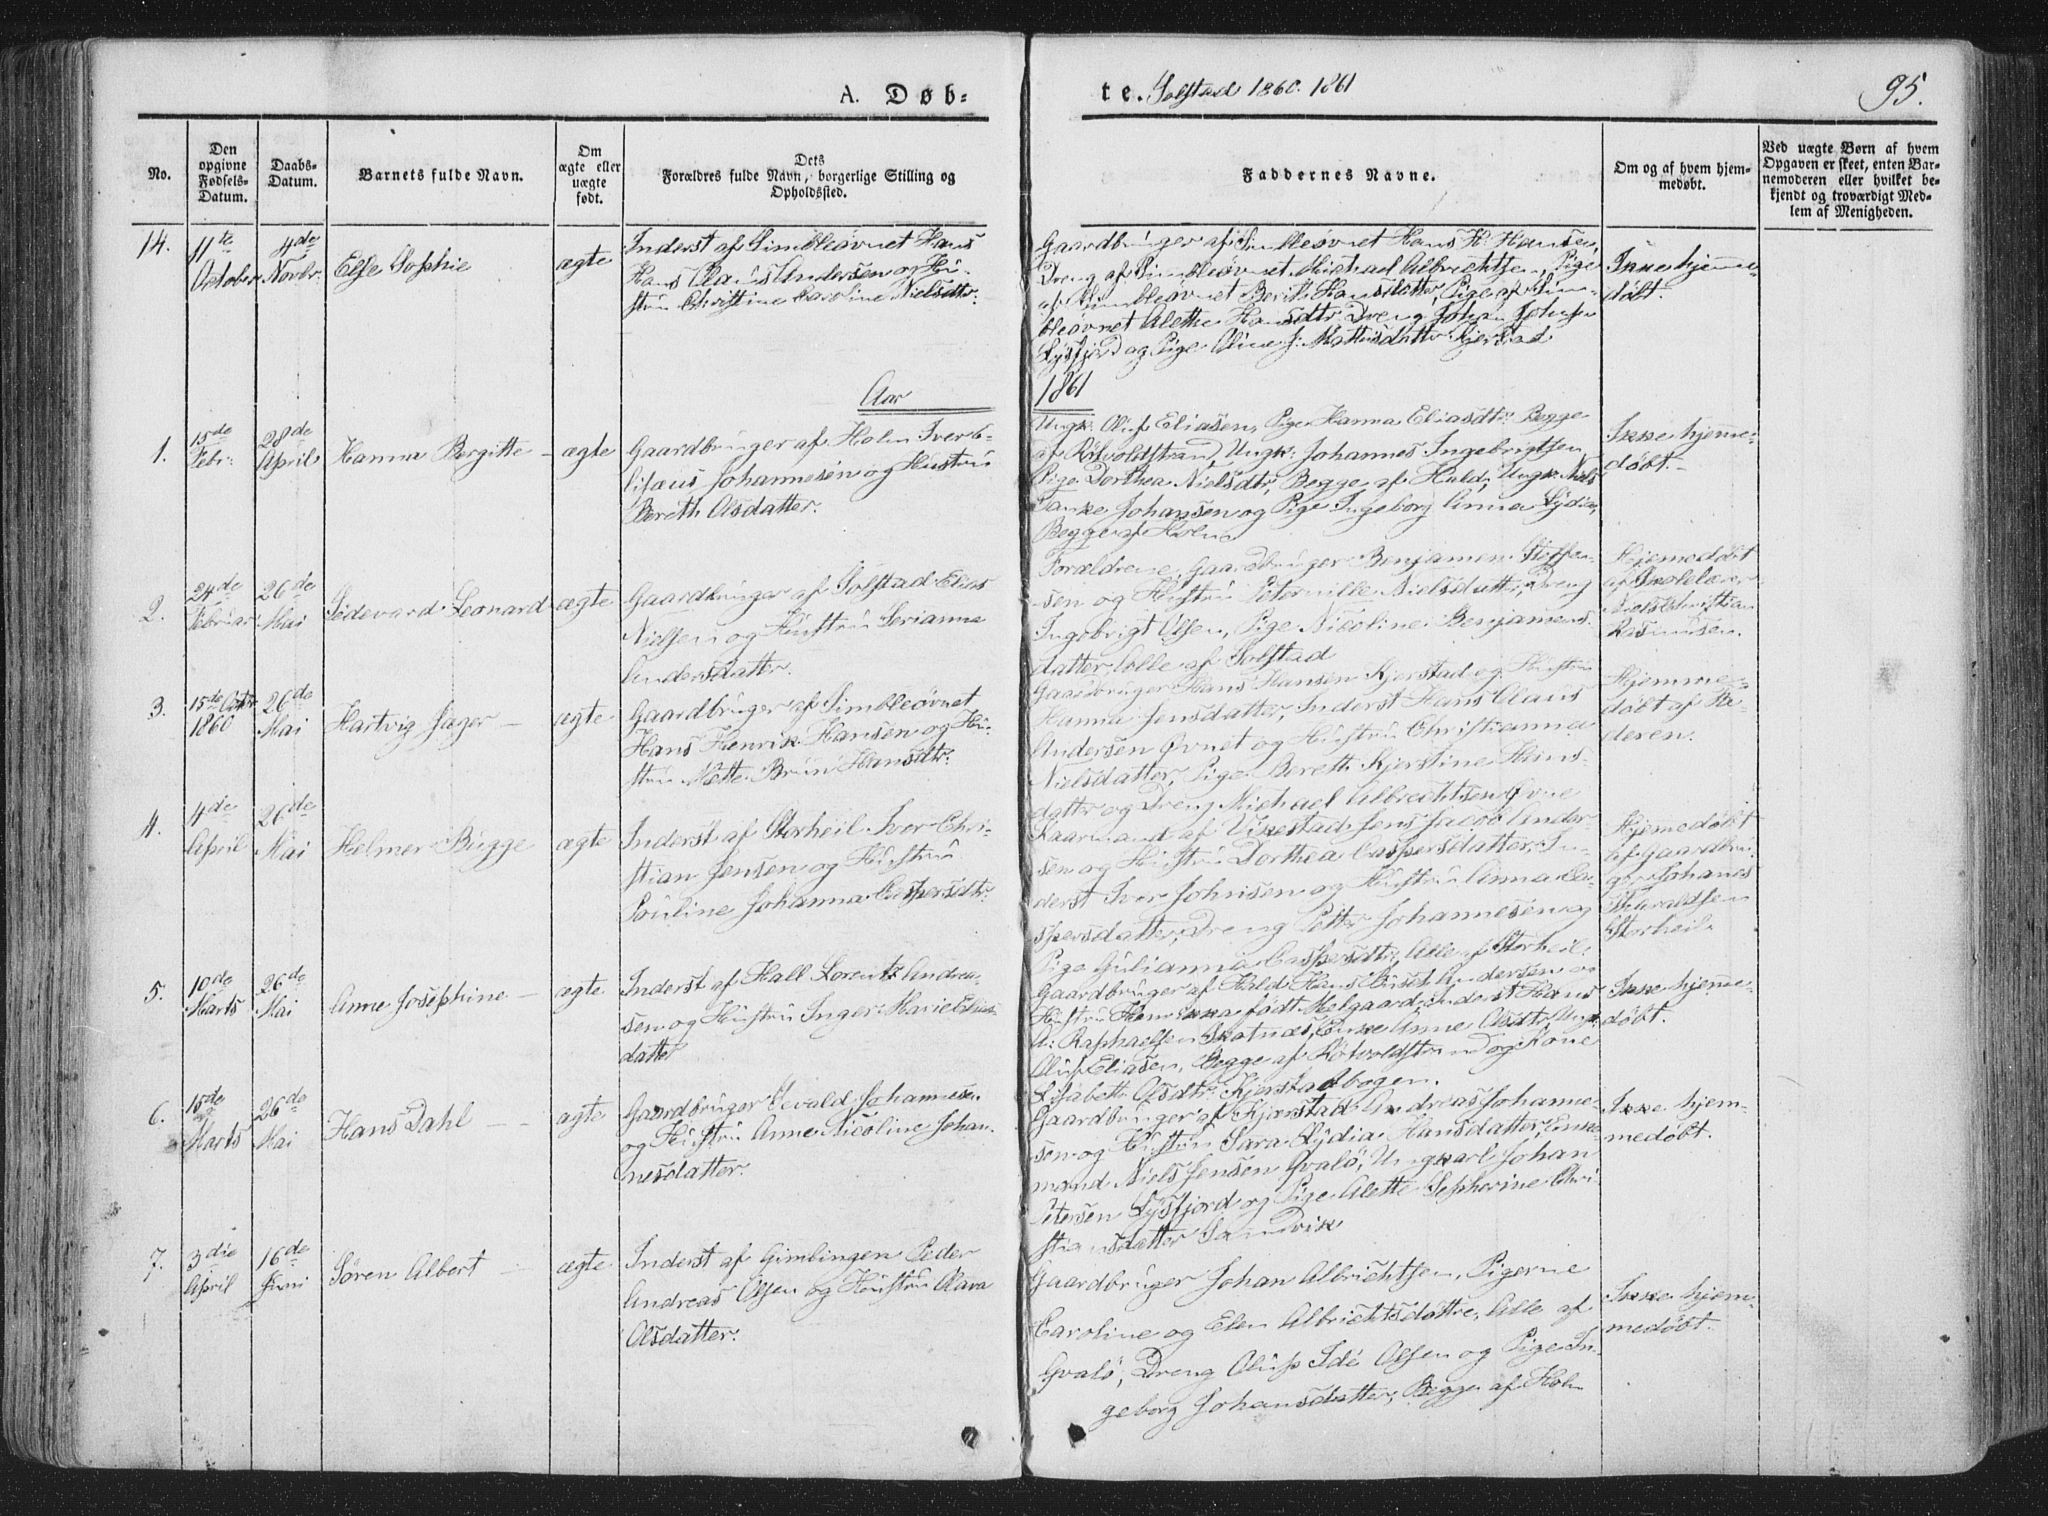 A. Døb-
te. Solstad 1860. 1861
95.
No.
Den opgivne Fødsels-Datum.
Daabs-Datum.
Barnets fulde Navn.
Om ægte eller uægte født.
Dets Forældres fulde Navn, borgerlige Stilling og Opholdssted.
Faddernes Navne.
Om og af hvem hjem-medøbt.
Ved uægte Børn af hvem Opgaven er skeet, enten Bar-nemoderen eller hvilket be-kjendt og troværdigt Med-lem af Menigheden.
14.
11te October
4de Novbr.
Else Sophie
ægte
Inderst af Simbleøvnet Hans
Hans Claus Andersen og Hu-
stru Christine Caroline Nielsdtr.
Gaardbruger af Simbleøvnet Hans H. Hansen,
Dreng af Simbleøvnet Michael Albrechtsen, Pige
af Simbleøvnet Berit Hansdatter, Pige af Sim-
bleøvnet Alette Hansdtr Dreng Johan
Lysfjord og Pige Oline J. Mathisdatter Kjerstad
Ikke hjemme-
døbt.
Aar
1861
1.
15de Febr.
28de April
Hanna Bergitte
ægte
Gaardbruger af Holm Iver
Johannesen og Hustru
Bereth Olsdatter.
Ungk. Oluf Eliasen, Pige Hanna Eliasdtr. Begge
af Røtvoldstrand, Ungk. Johannes Ingebrigtsen
Pige Dorthea Nielsdtr, Begge af Hald, Ungk. Niels
Tanke Johansen og Pige Ingeborg Anna Lydia,
Begge af Holm
Ikke hjemme-
døbt.
2.
24de Februar
26de Mai
Sedevard Leonard
ægte
Gaardbruger af Solstad Elias
Nielsen og Hustru Serianna
Andersdattr.
Forældrene, Gaardbruger Benjamin Steffen-
sen og Hustru Peternille Nielsdatter, Dreng
Ingebrigt Olsen, Pige Nicoline Benjamens-
datter, Alle af Solstad
Hjemmedøbt
af Skolelærer
Niels Christian
Rasmusen.
3.
15de Octbr 1860
26de Mai
Hartvig Jager
ægte
Gaardbruger af Simbleøvnet
Hans Henrik Hansen og Hu-
stru Mette Bruun Hansdtr.
Gaardbruger Hans Hansen Kjerstad og Hustru
Hanna Jensdatter, Inderst Hans Claus
Andersen Øvnet og Hustru Christianna
Nielsdatter, Pige Bereth Kjerstine Hans-
dattr og Dreng Michael Albrechtsen Øvne
Hjemme-
døbt af Fa-
deren.
4.
4de April
26de Mai
Helmer Bugge
ægte
Inderst af Storheil Iver Chri-
stian Jensen og Hustru
Pauline Johanna Caspersdtr.
Kaarmand af Vikestad Jens Jacob Ander-
sen og Hustru Dorthea Caspersdatter, In-
derst Iver Johnsen og Hustru Anna Ca-
spersdatter, Dreng Petter Johannesen og
Pige Gulianna Caspersdtr, Alle af Storheil.
Hjemmedøbt
af Gaardbru-
ger Johannes
Haraldsen
Storheil.
5.
10de Marts
26de Mai
Anne Josephine
ægte
Inderst af Hall Lorentz Andrea-
sen og Hustru Inger Marie Elias-
datter
Gaardbruger af Hald Hans Buschl Andersen og
Hustru født Melgaard, Inderst Hans
A. Raphaelsen Skotnæs, Enke Anne Olsdtr, Ungk.
Oluf Eliasen, Begge af Røtvoldstrand og Kone
Lisabeth Olsdtr. Kjerstadbogen.
Ikke hjemme-
døbt.
6.
10de Marts
26de Mai
Hans Dahl
ægte
Gaardbruger Sevald Johannesen
og Hustru Anne Nicoline Johan-
nesdatter.
Gaardbruger af Kjærstad Andreas Johanne-
sen og Hustru Sara Lydia Hansdatter, Enke-
mand Niels Jensen Qvalø, Ungkarl Johan
Petersen Lysfjord og Pige Alette Sepherine Chri-
stiansdatter Sandvik
Ikke hjem-
medøbt.
7.
3die April
16de Juni
Søren Albert
ægte
Inderst af Gimlingen Peder
Andreas Olsen og Hustru Olava
Olsdatter.
Gaardbruger Johan Albrichtsen, Pigerne
Caroline og Elen Albrichtsdøttre, Alle af
Qvalø, Dreng Oluf Ide Olsen og Pige In-
geborg Johansdatter, Begge af Holm
Ikke hjem-
medøbt.